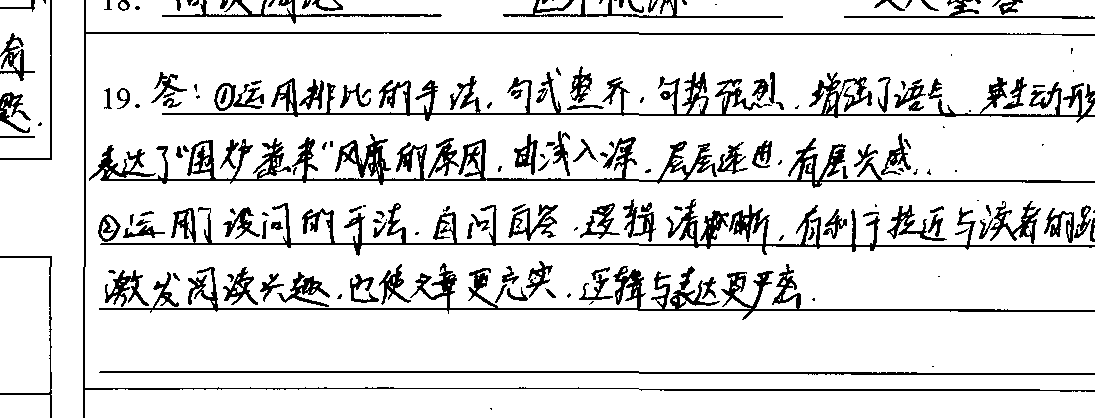 18.
俞
题.
19. 答: ①运用排比的手法, 句式整齐, 句势强烈, 增强了语气, 生动形
表达了"围炉煮茶"风靡的原因, 由浅入深, 层层递进, 有层次感.
②运用了设问的手法, 自问自答, 逻辑清晰, 有利于拉近与读者的距
激发阅读兴趣, 也使文章更充实, 逻辑与表达更严密.